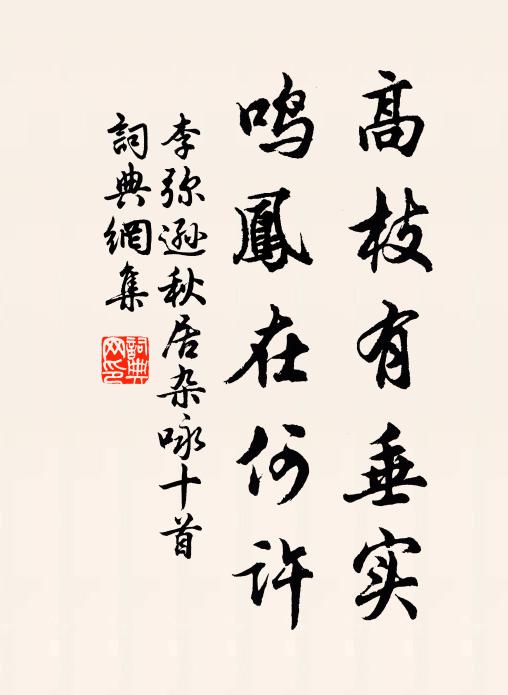 高枝有垂实
鸣鳳在何许
李弥遜秋居杂咏十首
詞典網集
詞典网印